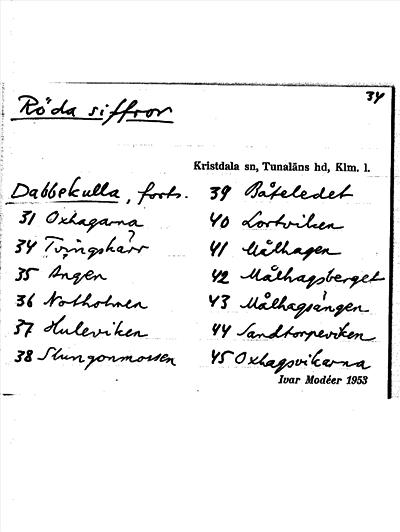 34
Röda siffror
Kristdala sn, Tunaläns hd, Klm. l.
Dabbekulla, forts.
31 Oxhagarna
34 Tvingskärr ?
35 Ängen
36 Notholmen
37 Huleviken
38 Slungonmossen
39 Båteledet
40 Lortviken
41 Målhagen
42 Målhagsberget
43 Målhagsängen
44 Sandtorpeviken
45 Oxhagsvikarna
Ivar Modéer 1953